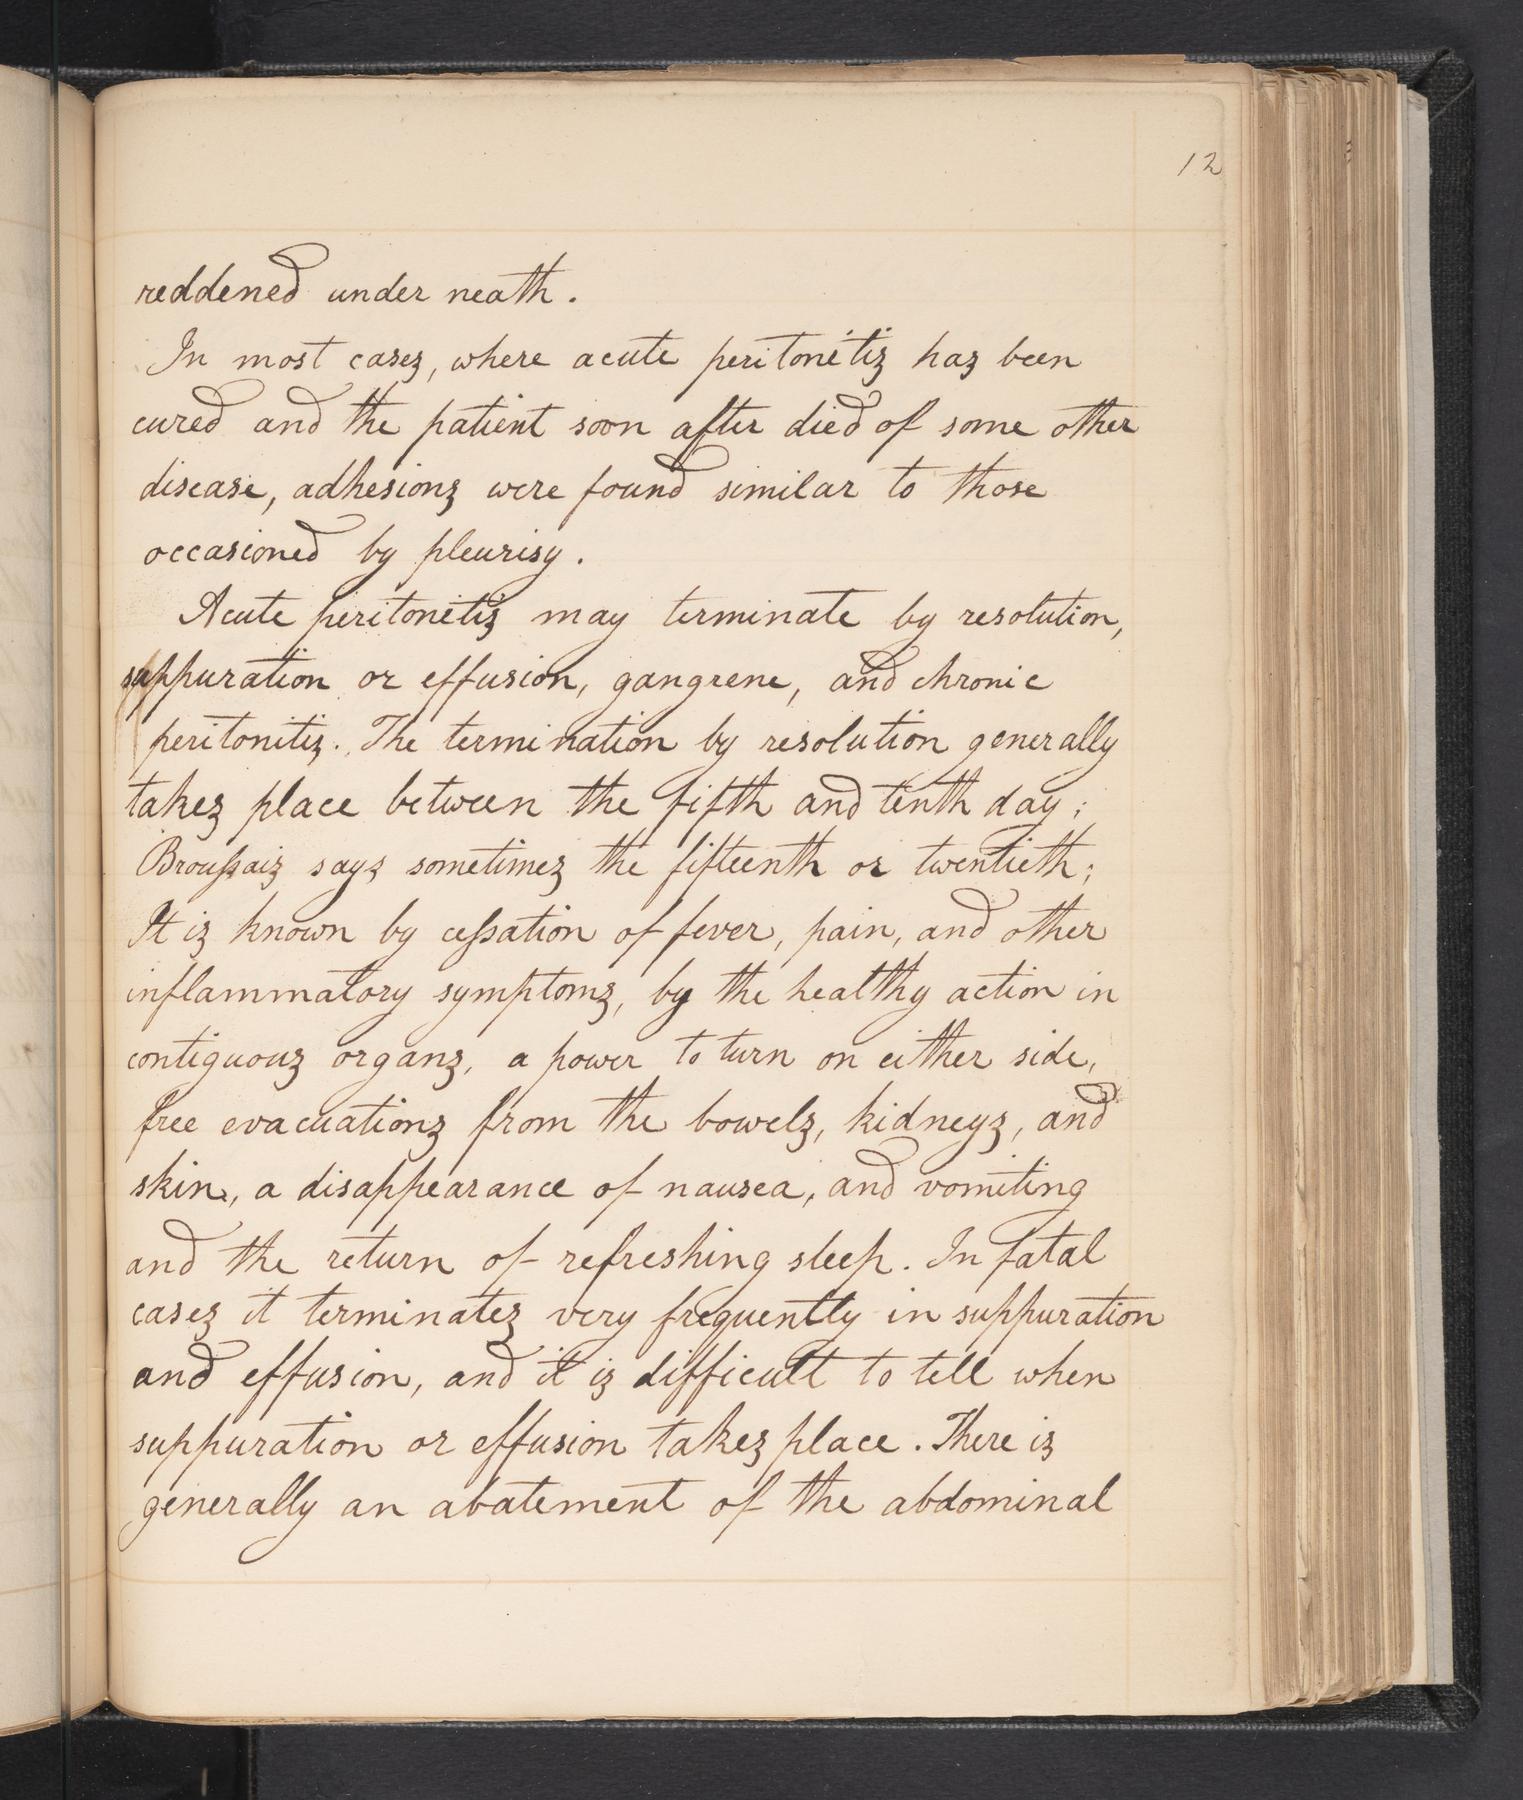 12
reddened under neath.
In most cases, where acute peritonetis has been
cured and the patient soon after died of some other
disease, adhesions were found similar to those
occasioned by pleurisy.
Acute peritonetis may terminate by resolution,
suppuration or effusion, gangrene, and chronic
peritonitis. The termination by resolution generally
takes place between the fifth and tenth day;
Broussais says sometimes the fifteenth or twentieth;
It is known by cessation of fever, pain, and other
inflammatory symptoms, by the healthy action in
contiguous organs, a power to turn on either side,
free evacuations from the bowels, kidneys, and
skin, a disappearance of nausea, and vomiting
and the return of refreshing sleep. In fatal
cases it terminates very frequently in suppuration
and effusion, and it is difficult to tell when
suppuration or effusion takes place. There is
generally an abatement of the abdominal